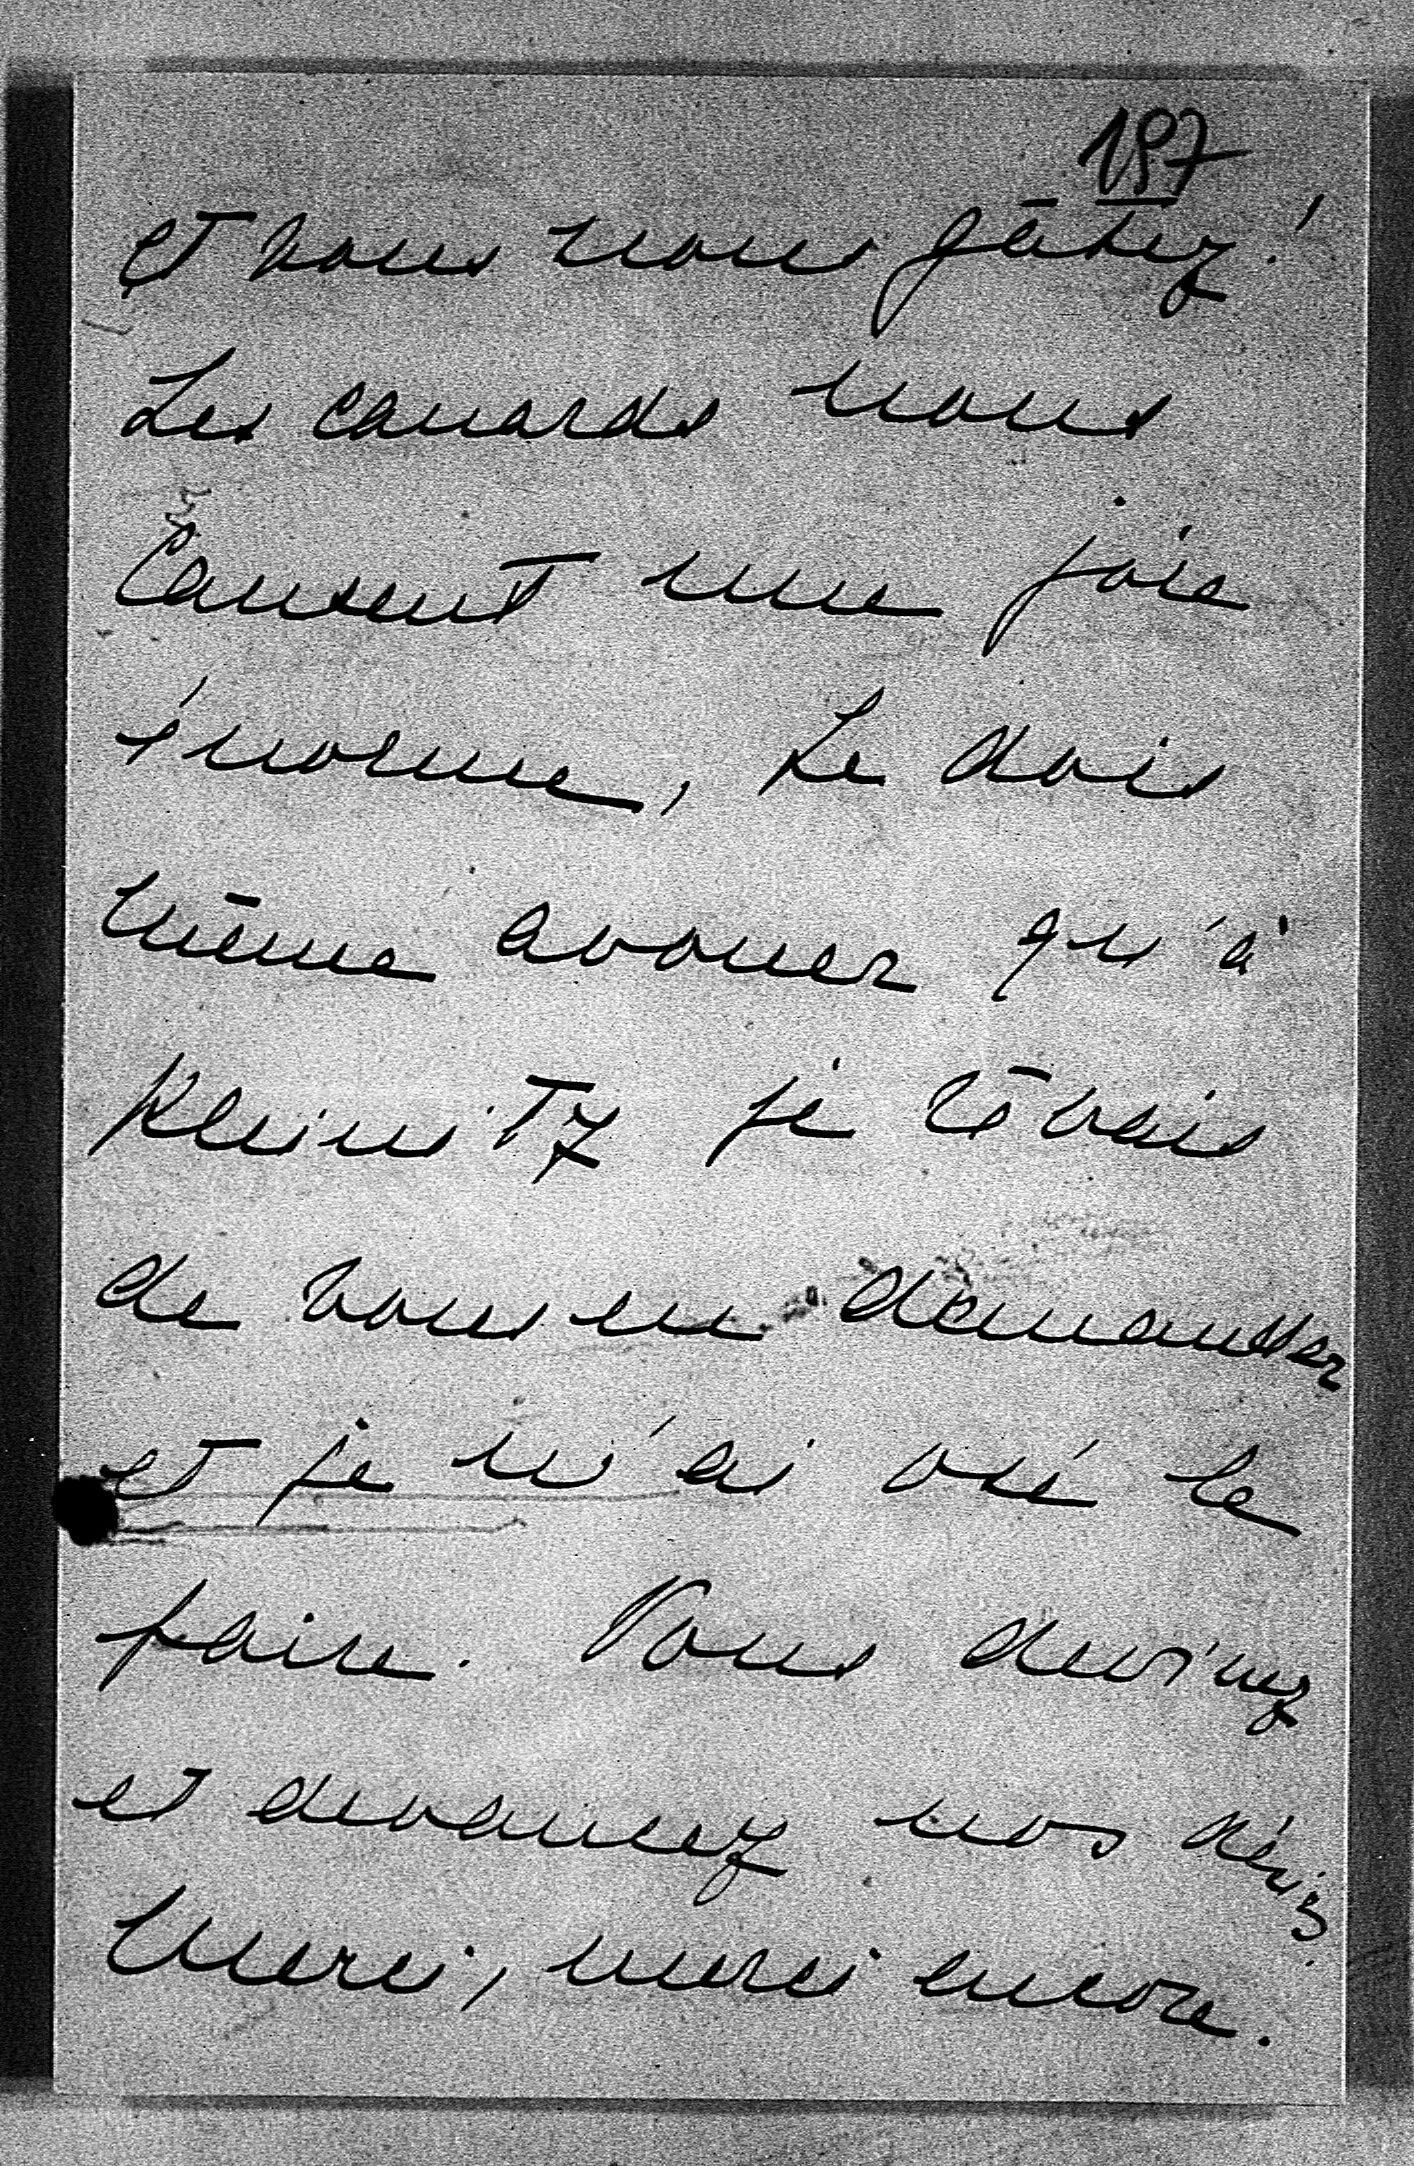 197
et vous nous gâtez!
Les canards nous
causent une joie
énorme, Je dois
même avouer qu'à
Kleinitz je rêvais
de vous en demander
et je n'ai osé le
faire. Vous devinez
et devancez nos désirs.
Merci, merci encore.